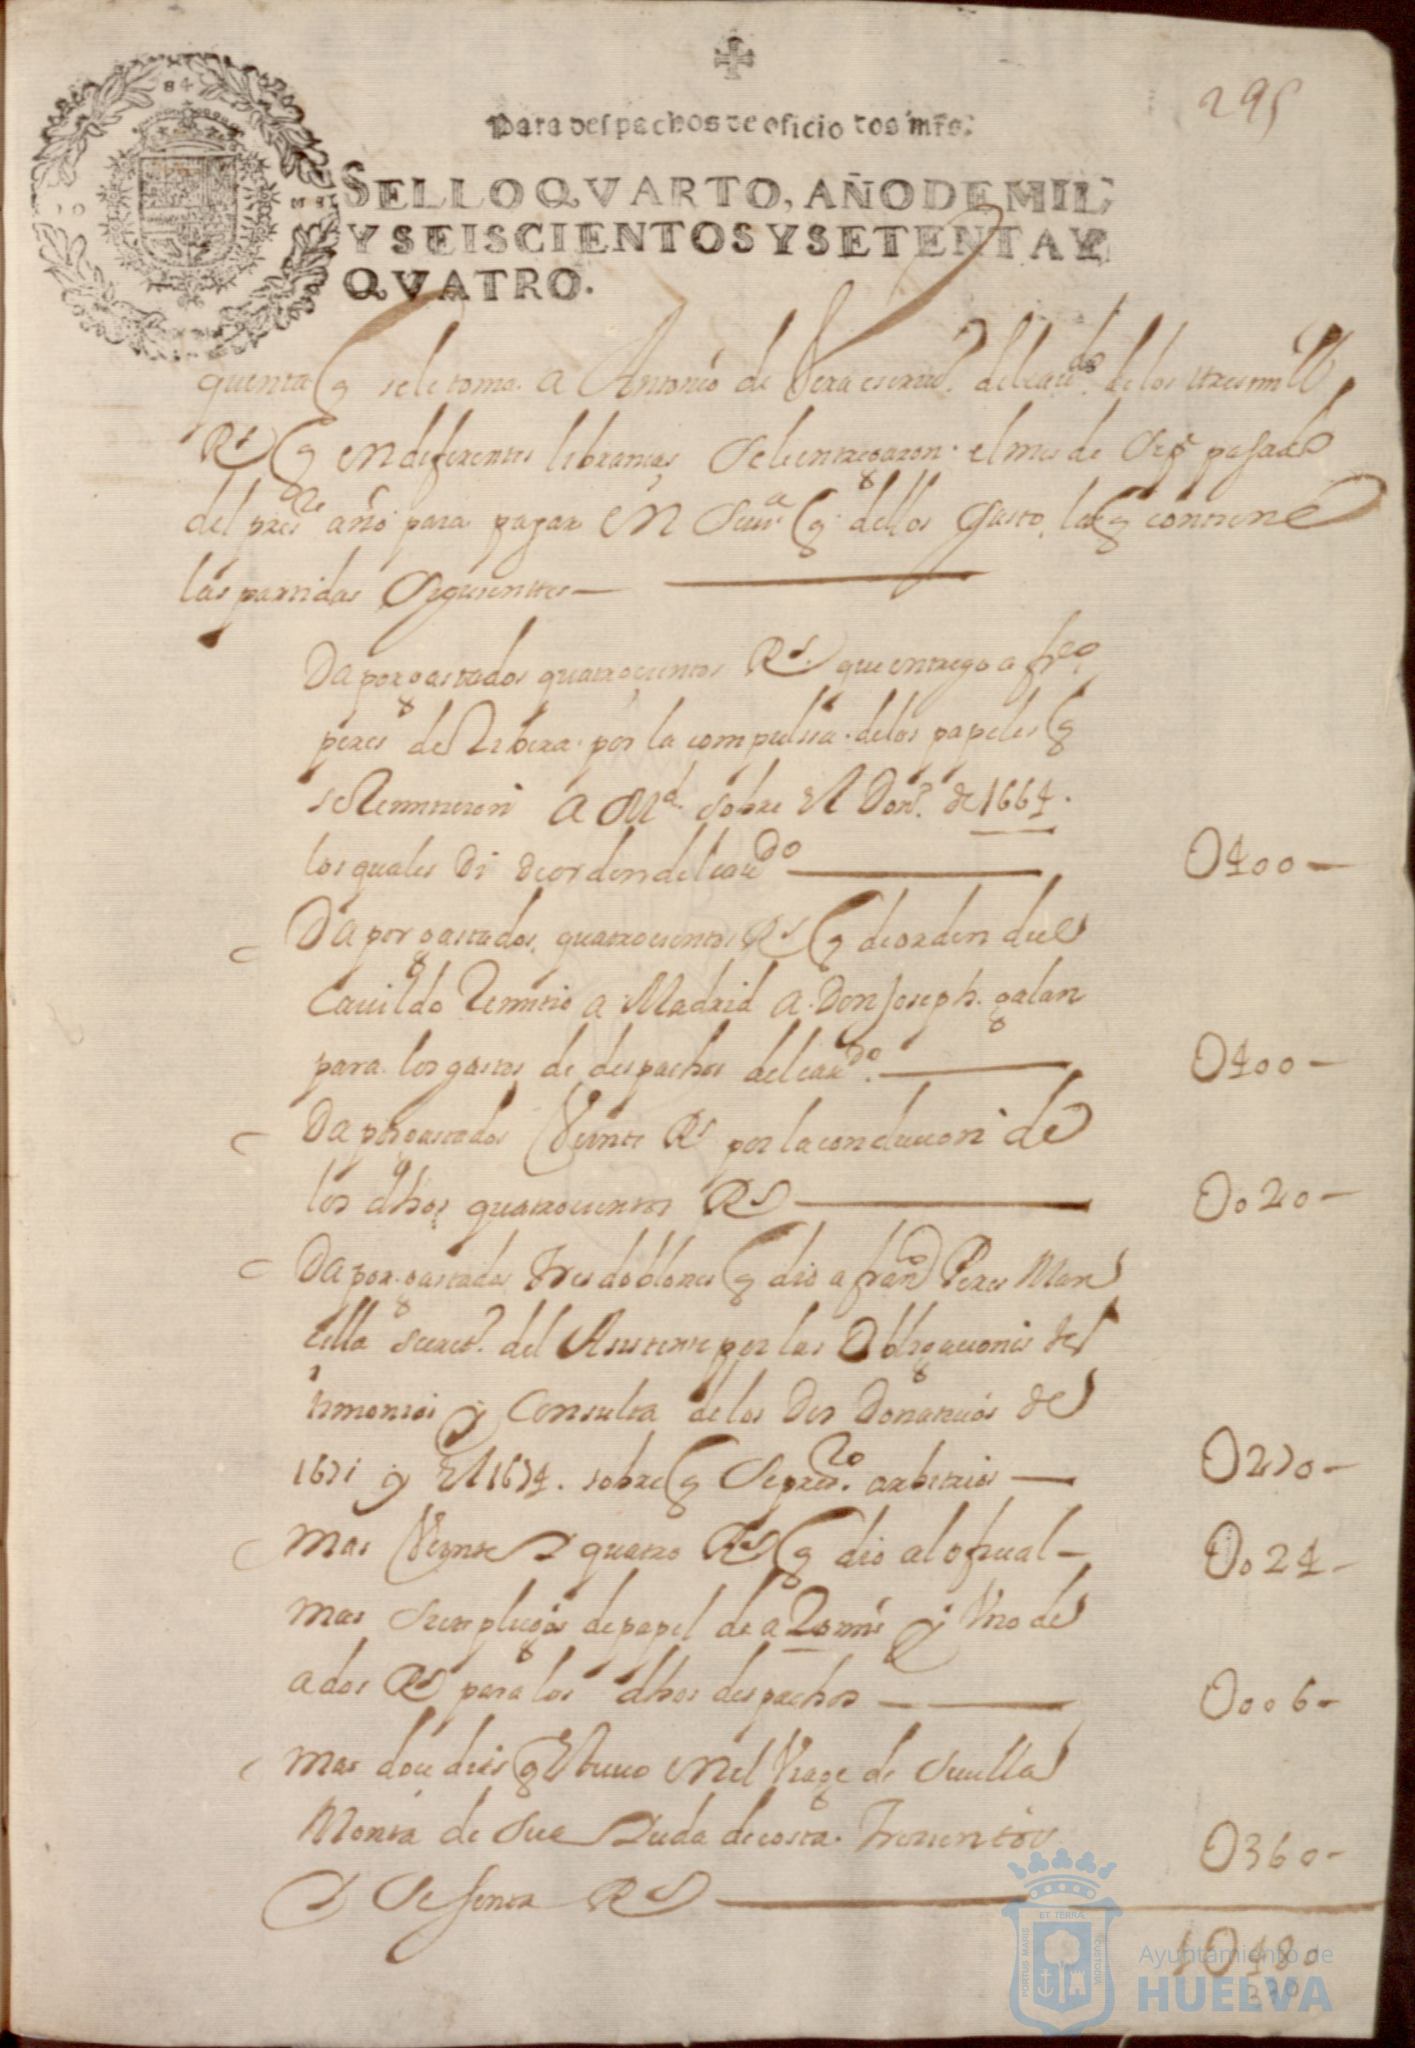 295
Para despachos de oficio dos mrs.
SELLO QVARTO, AÑO DE MIL
Y SEISCIENTOS Y SETENTA Y
QVATRO.
quenta q se le toma a Antonio de Vera escriv.º del cavdo de los tres mill
Rs q en diferentes libranças se le entregaron el mes de Sepe pasado
del preste año para pagar en Sevª q dellos gasto, la q contiene
las partidas siguientes
Da por gastados quatroçientos Rs que entrego a frco
peres de Ribera por la compulsa de los papeles q
se Remitieron a Md sobre el Donº de 1664
los quales di de orden del cavdo 0400
Da por gastados quatrocientos Rs q de orden del
Cavildo Remitio a Madrid a Don Joseph galan
para los gastos de despachos del cavdo 0400
Da por gastados Veinte Rs por la conducion de
los dhos quatrocientos Rs 0020
Da por gastados tres doblones q dio a frano Peres Man
cilla Secretº del Asistente por las Obligaciones tes
timonios y Consulta de los Dos Donativos de
1671 y el 1674 sobre q se presto arbitrios 0270
mas Veinte y quatro Rs q dio al ofiçial 0024
mas Seis pliegos de papel de a 20 mrs y Uno de
a dos Rs para los dhos despachos 0006
mas doce dias q estuvo en el Viage de Sevilla
Monta de su aiuda de costa Trecientos
y Sesenta Rs 0360
10480
ET TERRÆ
PORTUS MARIS
CUSTODIA
Ayuntamiento de
HUELVA